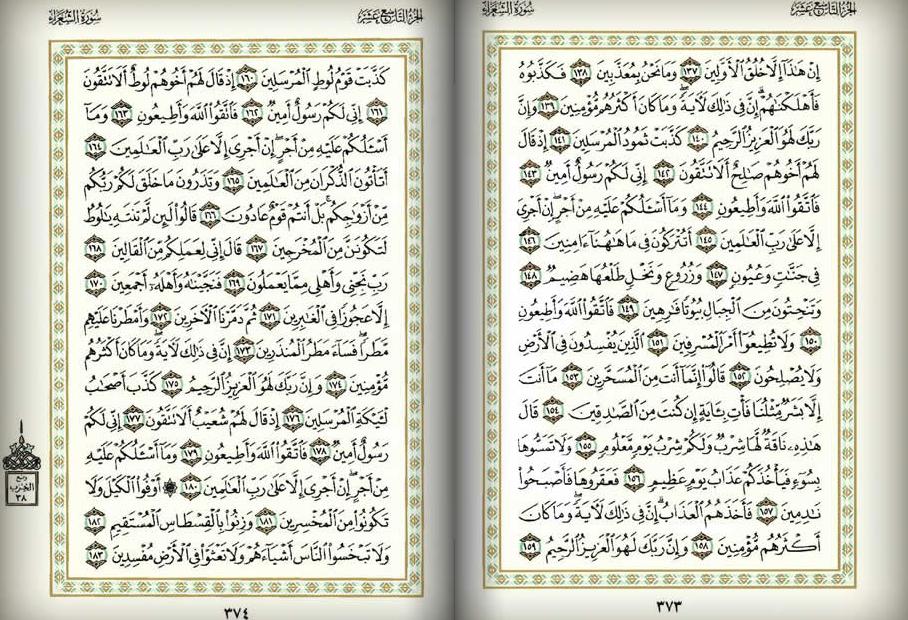 الجزء التاسع عشر
سورة الشعراء
إِنْ هَٰذَآ إِلَّا خُلُقُ ٱلْأَوَّلِينَ ١٣٧ وَمَا نَحْنُ بِمُعَذَّبِينَ ١٣٨ فَكَذَّبُوهُ
فَأَهْلَكْنَٰهُمْ ۗ إِنَّ فِى ذَٰلِكَ لَءَايَةً ۖ وَمَا كَانَ أَكْثَرُهُم مُّؤْمِنِينَ ١٣٩ وَإِنَّ
رَبَّكَ لَهُوَ ٱلْعَزِيزُ ٱلرَّحِيمُ ١٤٠ كَذَّبَتْ ثَمُودُ ٱلْمُرْسَلِينَ ١٤١ إِذْ قَالَ
لَهُمْ أَخُوهُمْ صَٰلِحٌ أَلَا تَتَّقُونَ ١٤٢ إِنِّى لَكُمْ رَسُولٌ أَمِينٌ ١٤٣
فَٱتَّقُوا۟ ٱللَّهَ وَأَطِيعُونِ ١٤٤ وَمَآ أَسْـَٔلُكُمْ عَلَيْهِ مِنْ أَجْرٍ ۖ إِنْ أَجْرِىَ
إِلَّا عَلَىٰ رَبِّ ٱلْعَٰلَمِينَ ١٤٥ أَتُتْرَكُونَ فِى مَا هَٰهُنَآ ءَامِنِينَ ١٤٦
فِى جَنَّٰتٍ وَعُيُونٍ ١٤٧ وَزُرُوعٍ وَنَخْلٍ طَلْعُهَا هَضِيمٌ ١٤٨
وَتَنْحِتُونَ مِنَ ٱلْجِبَالِ بُيُوتًا فَٰرِهِينَ ١٤٩ فَٱتَّقُوا۟ ٱللَّهَ وَأَطِيعُونِ
١٥٠ وَلَا تُطِيعُوٓا۟ أَمْرَ ٱلْمُسْرِفِينَ ١٥١ ٱلَّذِينَ يُفْسِدُونَ فِى ٱلْأَرْضِ
وَلَا يُصْلِحُونَ ١٥٢ قَالُوٓا۟ إِنَّمَآ أَنتَ مِنَ ٱلْمُسَحَّرِينَ ١٥٣ مَآ أَنتَ
إِلَّا بَشَرٌ مِّثْلُنَا فَأْتِ بِـَٔايَةٍ إِن كُنتَ مِنَ ٱلصَّٰدِقِينَ ١٥٤ قَالَ
هَٰذِهِۦ نَاقَةٌ لَّهَا شِرْبٌ وَلَكُمْ شِرْبُ يَوْمٍ مَّعْلُومٍ ١٥٥ وَلَا تَمَسُّوهَا
بِسُوٓءٍ فَيَأْخُذَكُمْ عَذَابُ يَوْمٍ عَظِيمٍ ١٥٦ فَعَقَرُوهَا فَأَصْبَحُوا۟
نَٰدِمِينَ ١٥٧ فَأَخَذَهُمُ ٱلْعَذَابُ ۗ إِنَّ فِى ذَٰلِكَ لَءَايَةً ۖ وَمَا كَانَ
أَكْثَرُهُم مُّؤْمِنِينَ ١٥٨ وَإِنَّ رَبَّكَ لَهُوَ ٱلْعَزِيزُ ٱلرَّحِيمُ ١٥٩
٣٧٣
الجزء التاسع عشر
سورة الشعراء
كَذَّبَتْ قَوْمُ لُوطٍ ٱلْمُرْسَلِينَ ١٦٠ إِذْ قَالَ لَهُمْ أَخُوهُمْ لُوطٌ أَلَا تَتَّقُونَ
١٦١ إِنِّى لَكُمْ رَسُولٌ أَمِينٌ ١٦٢ فَٱتَّقُوا۟ ٱللَّهَ وَأَطِيعُونِ ١٦٣ وَمَآ
أَسْـَٔلُكُمْ عَلَيْهِ مِنْ أَجْرٍ ۖ إِنْ أَجْرِىَ إِلَّا عَلَىٰ رَبِّ ٱلْعَٰلَمِينَ ١٦٤
أَتَأْتُونَ ٱلذُّكْرَانَ مِنَ ٱلْعَٰلَمِينَ ١٦٥ وَتَذَرُونَ مَا خَلَقَ لَكُمْ رَبُّكُم
مِّنْ أَزْوَٰجِكُم ۚ بَلْ أَنتُمْ قَوْمٌ عَادُونَ ١٦٦ قَالُوا۟ لَئِن لَّمْ تَنتَهِ يَٰلُوطُ
لَتَكُونَنَّ مِنَ ٱلْمُخْرَجِينَ ١٦٧ قَالَ إِنِّى لِعَمَلِكُم مِّنَ ٱلْقَالِينَ ١٦٨
رَبِّ نَجِّنِى وَأَهْلِى مِمَّا يَعْمَلُونَ ١٦٩ فَنَجَّيْنَٰهُ وَأَهْلَهُۥٓ أَجْمَعِينَ ١٧٠
إِلَّا عَجُوزًا فِى ٱلْغَٰبِرِينَ ١٧١ ثُمَّ دَمَّرْنَا ٱلْءَاخَرِينَ ١٧٢ وَأَمْطَرْنَا عَلَيْهِم
مَّطَرًا ۖ فَسَآءَ مَطَرُ ٱلْمُنذَرِينَ ١٧٣ إِنَّ فِى ذَٰلِكَ لَءَايَةً ۖ وَمَا كَانَ أَكْثَرُهُم
مُّؤْمِنِينَ ١٧٤ وَإِنَّ رَبَّكَ لَهُوَ ٱلْعَزِيزُ ٱلرَّحِيمُ ١٧٥ كَذَّبَ أَصْحَٰبُ
لْـَٔيْكَةِ ٱلْمُرْسَلِينَ ١٧٦ إِذْ قَالَ لَهُمْ شُعَيْبٌ أَلَا تَتَّقُونَ ١٧٧ إِنِّى لَكُمْ
رَسُولٌ أَمِينٌ ١٧٨ فَٱتَّقُوا۟ ٱللَّهَ وَأَطِيعُونِ ١٧٩ وَمَآ أَسْـَٔلُكُمْ عَلَيْهِ
مِنْ أَجْرٍ ۖ إِنْ أَجْرِىَ إِلَّا عَلَىٰ رَبِّ ٱلْعَٰلَمِينَ ١٨٠ ۞ أَوْفُوا۟ ٱلْكَيْلَ وَلَا
تَكُونُوا۟ مِنَ ٱلْمُخْسِرِينَ ١٨١ وَزِنُوا۟ بِٱلْقِسْطَاسِ ٱلْمُسْتَقِيمِ ١٨٢
وَلَا تَبْخَسُوا۟ ٱلنَّاسَ أَشْيَآءَهُمْ وَلَا تَعْثَوْا۟ فِى ٱلْأَرْضِ مُفْسِدِينَ ١٨٣
ربع
الحزب
٣٨
٣٧٤